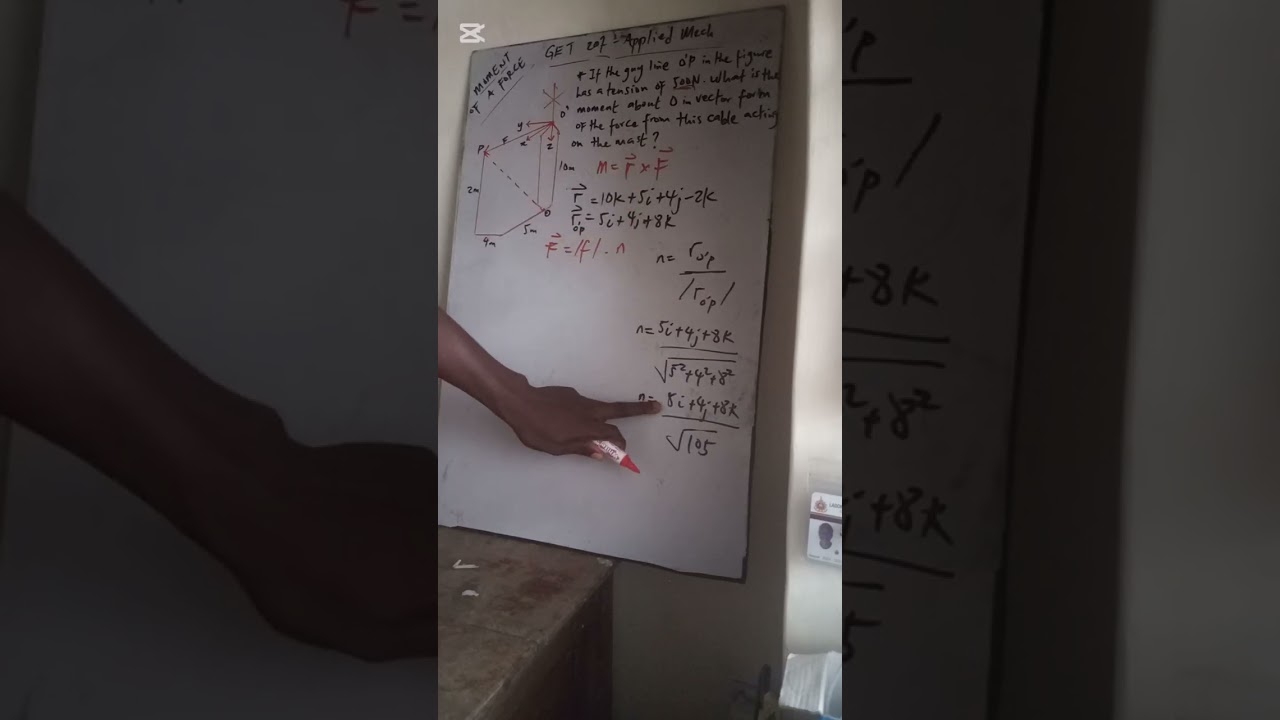 GET 207 - Applied Mech
MOMENT
OF A FORCE
* If the guy line O'P in the figure
has a tension of 500N. What is the
moment about O in vector form
of the force from this cable acting
on the mast?
O'
y
F
x
z
P
10m
2m
O
5m
4m
M = r × F
r = 10k+5i+4j-2k
r = 5i+4j+8k
o'p
F = /f/ . n
n = ro'p
/ro'p/
n = 5i+4j+8k
√5²+4²+8²
n = 8i+4j+8k
√105